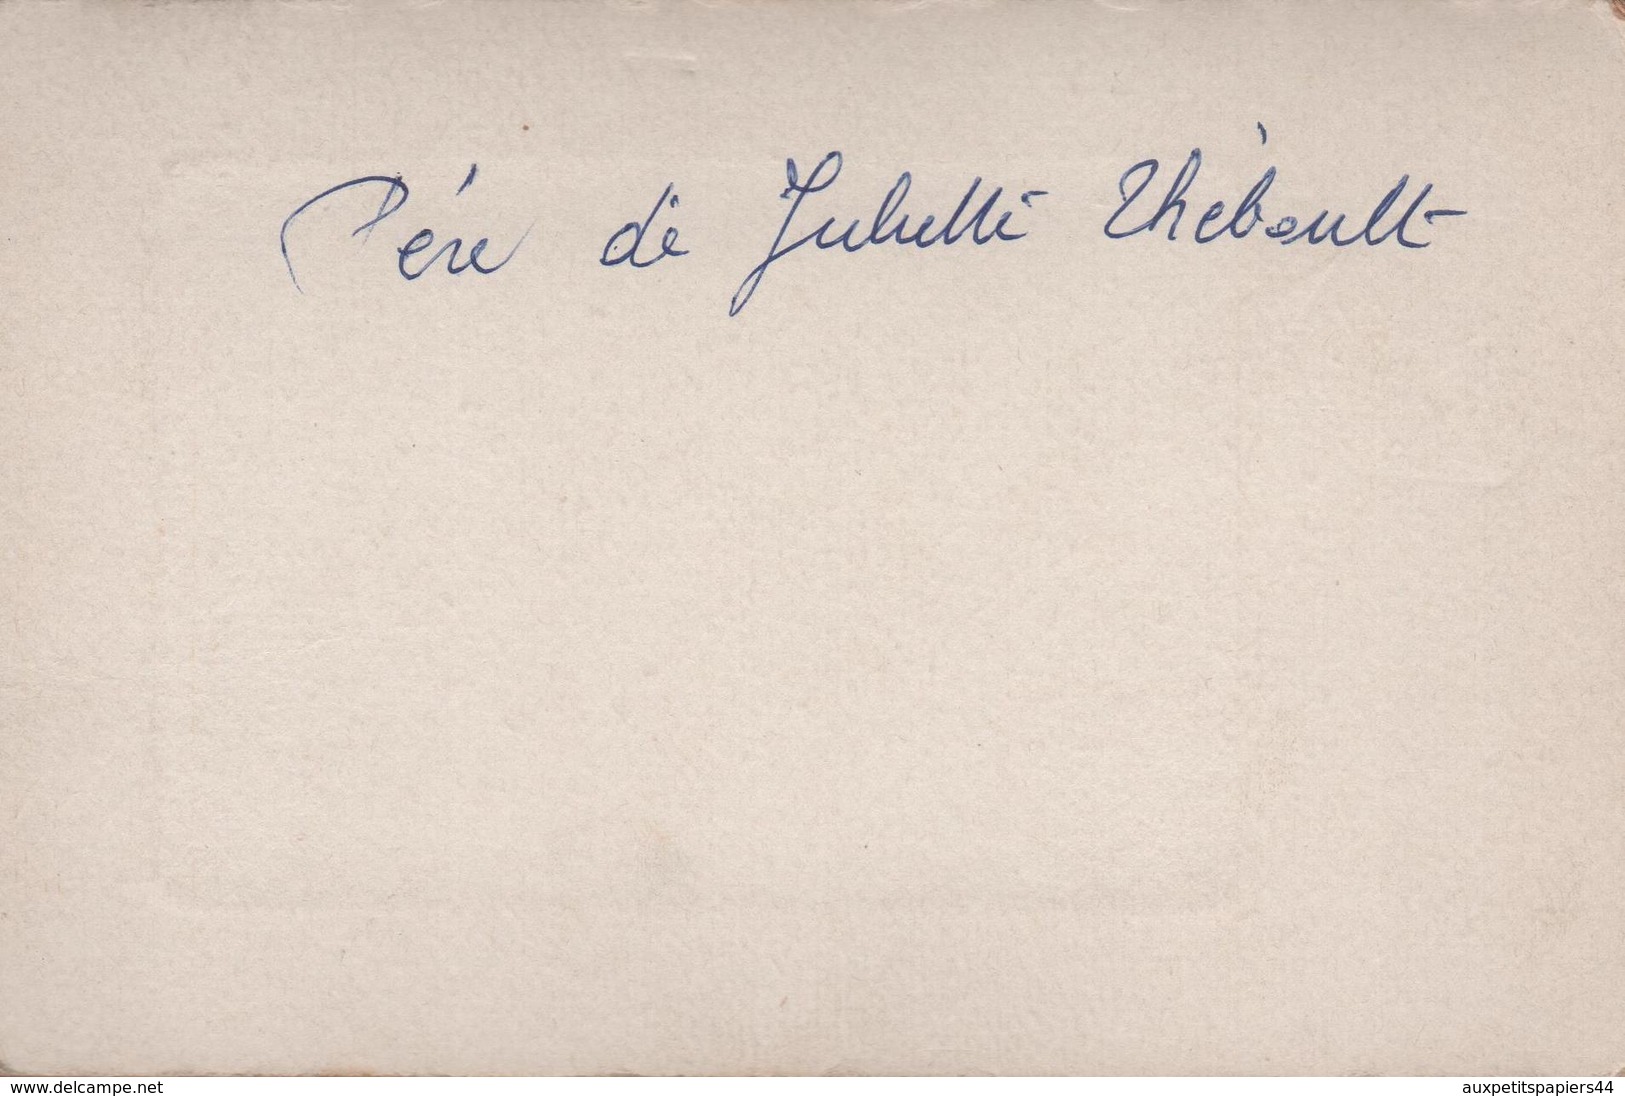 Père de Juliette Thébault
www.delcampe.net
auxpetitspapiers44